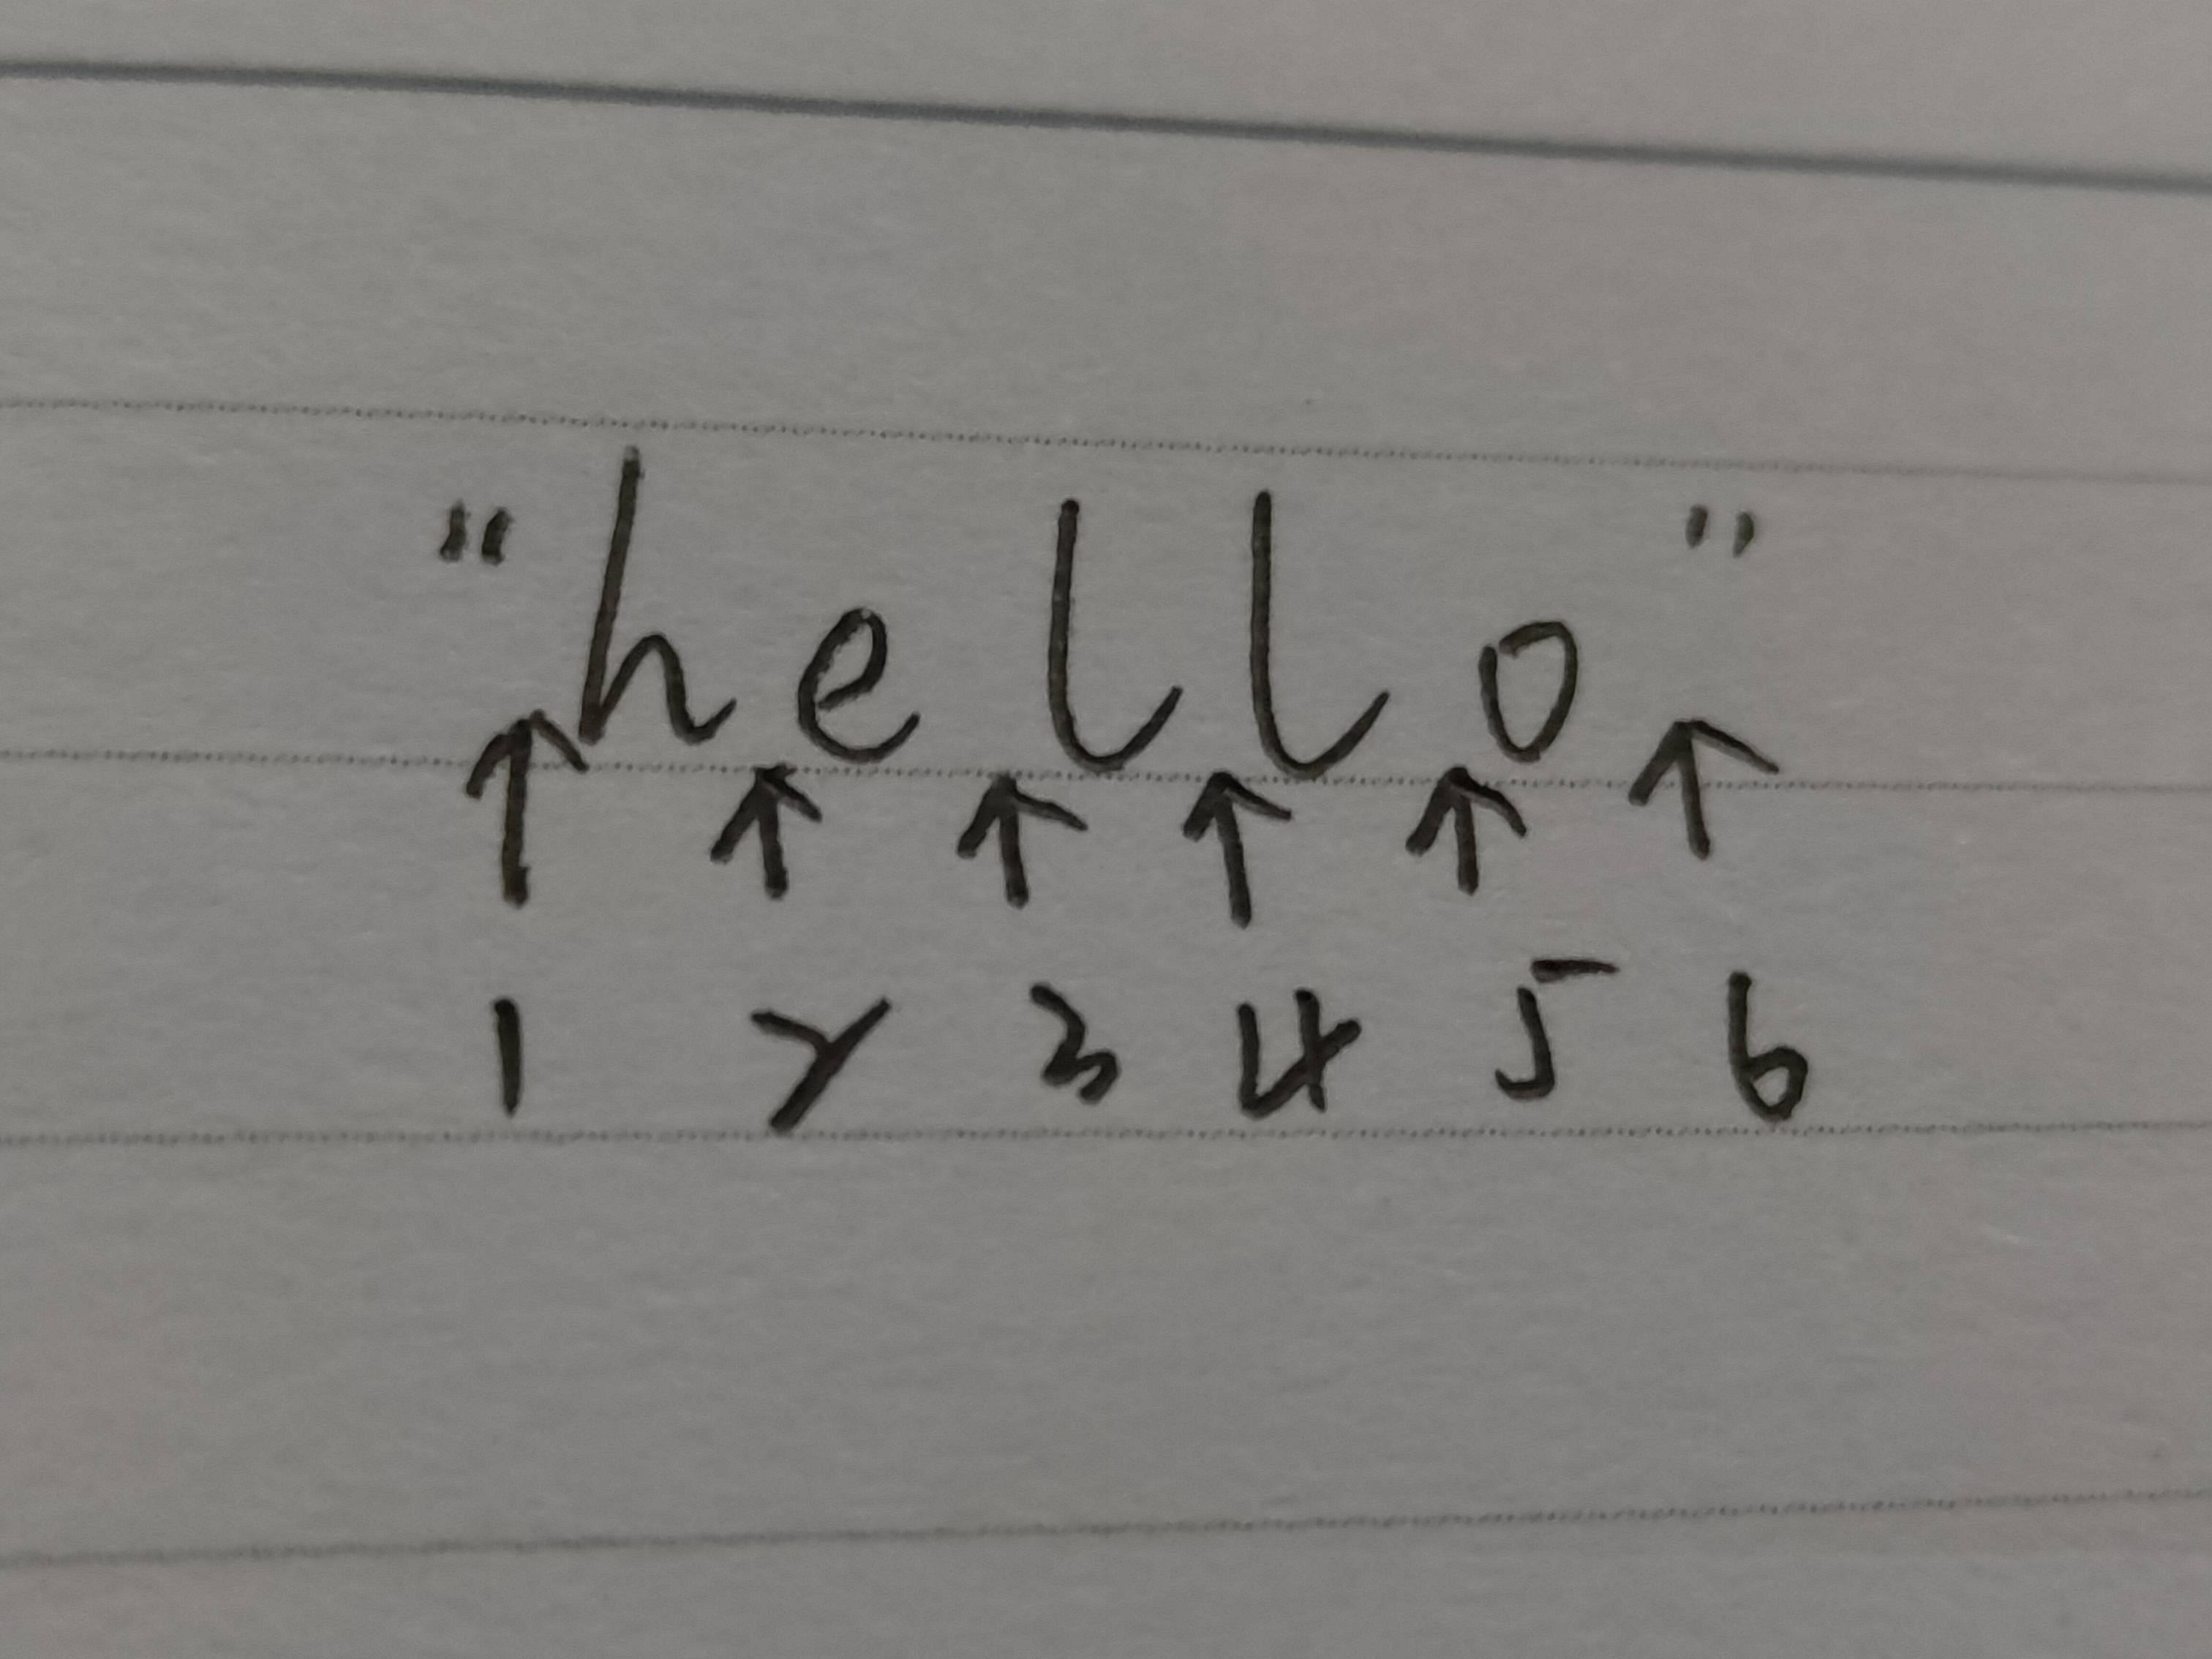 "hello"
↑ ↑ ↑ ↑ ↑ ↑
1 2 3 4 5 6